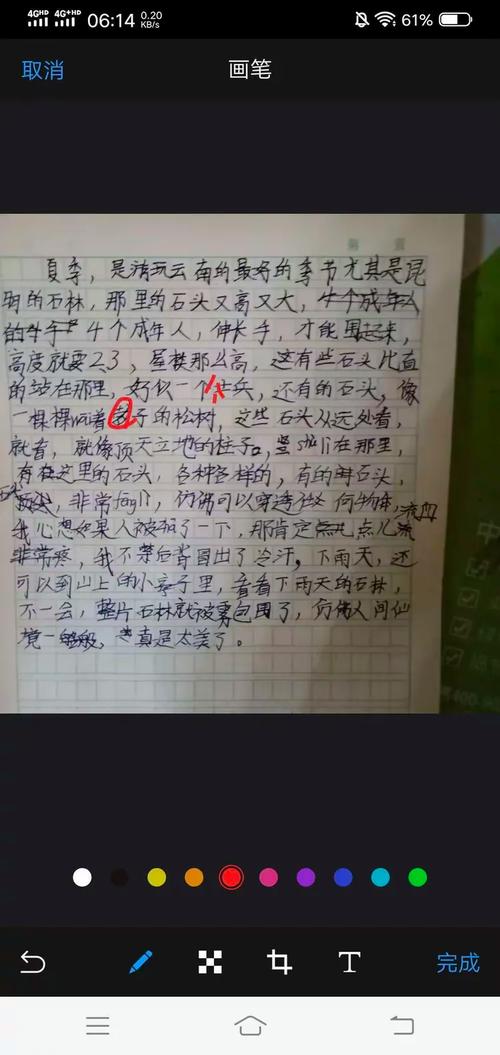 4GHD 4G+HD 06:14 0.20 KB/s 61%
取消 画笔
夏季,是游玩云南的最好的季节尤其是昆
明的石林,那里的石头又高又大,
4个成年人,伸长手,才能围起来,
高度就要2,3,层楼那么高,这有些石头笔直
的站在那里,好似一个士兵,还有的石头,像
一棵棵wei着子的松树,这些石头从远处看,
就有,就像顶天立地的柱子。shu li在那里,
有在这里的石头,各种各样的,有的石头,
非常feng li,仿佛可以穿透任何物体,流血
我心想如果人被了一下,那肯定点儿
非常疼,我不禁后背冒出了冷汗,下雨天,还
可以到山上的小亭子里,看看下雨天的石林,
不一会,整片石林就被雾包围了,仿佛人间仙
境一般,真是太美了。
T 完成